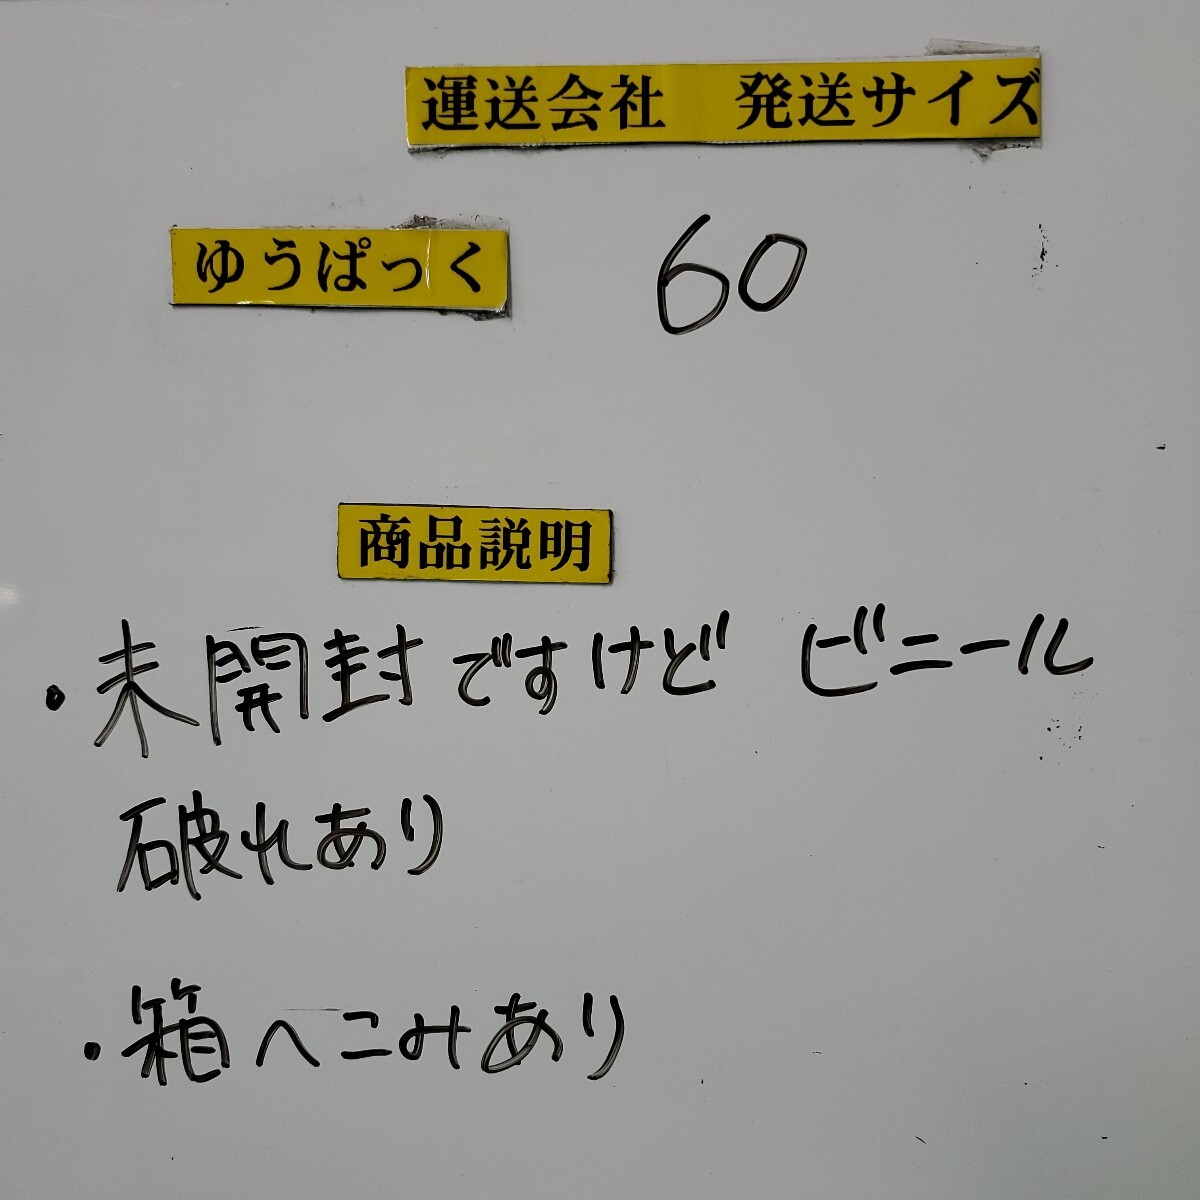 運送会社　発送サイズ
ゆうぱっく　60
商品説明
・未開封ですけど ビニール
破れあり
・箱へこみあり